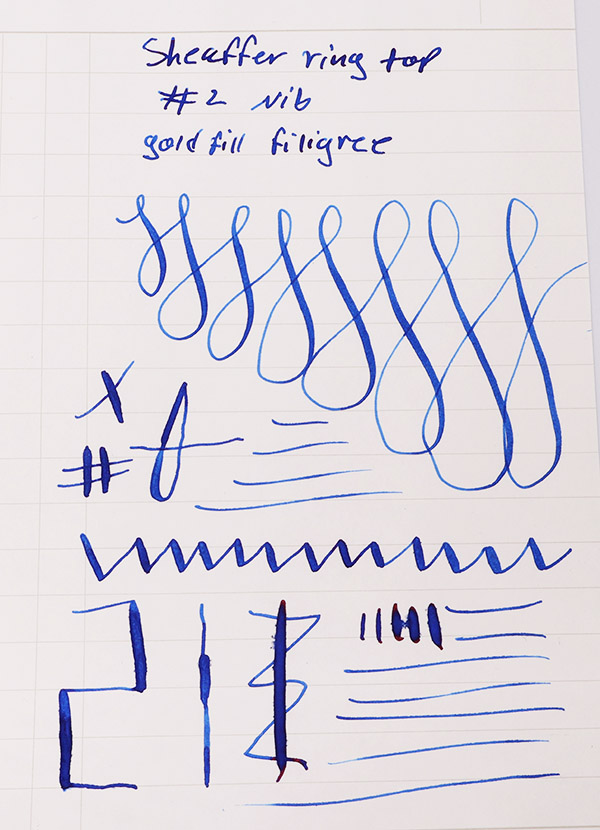 Sheaffer ring top
#2 Nib
gold fill filigree